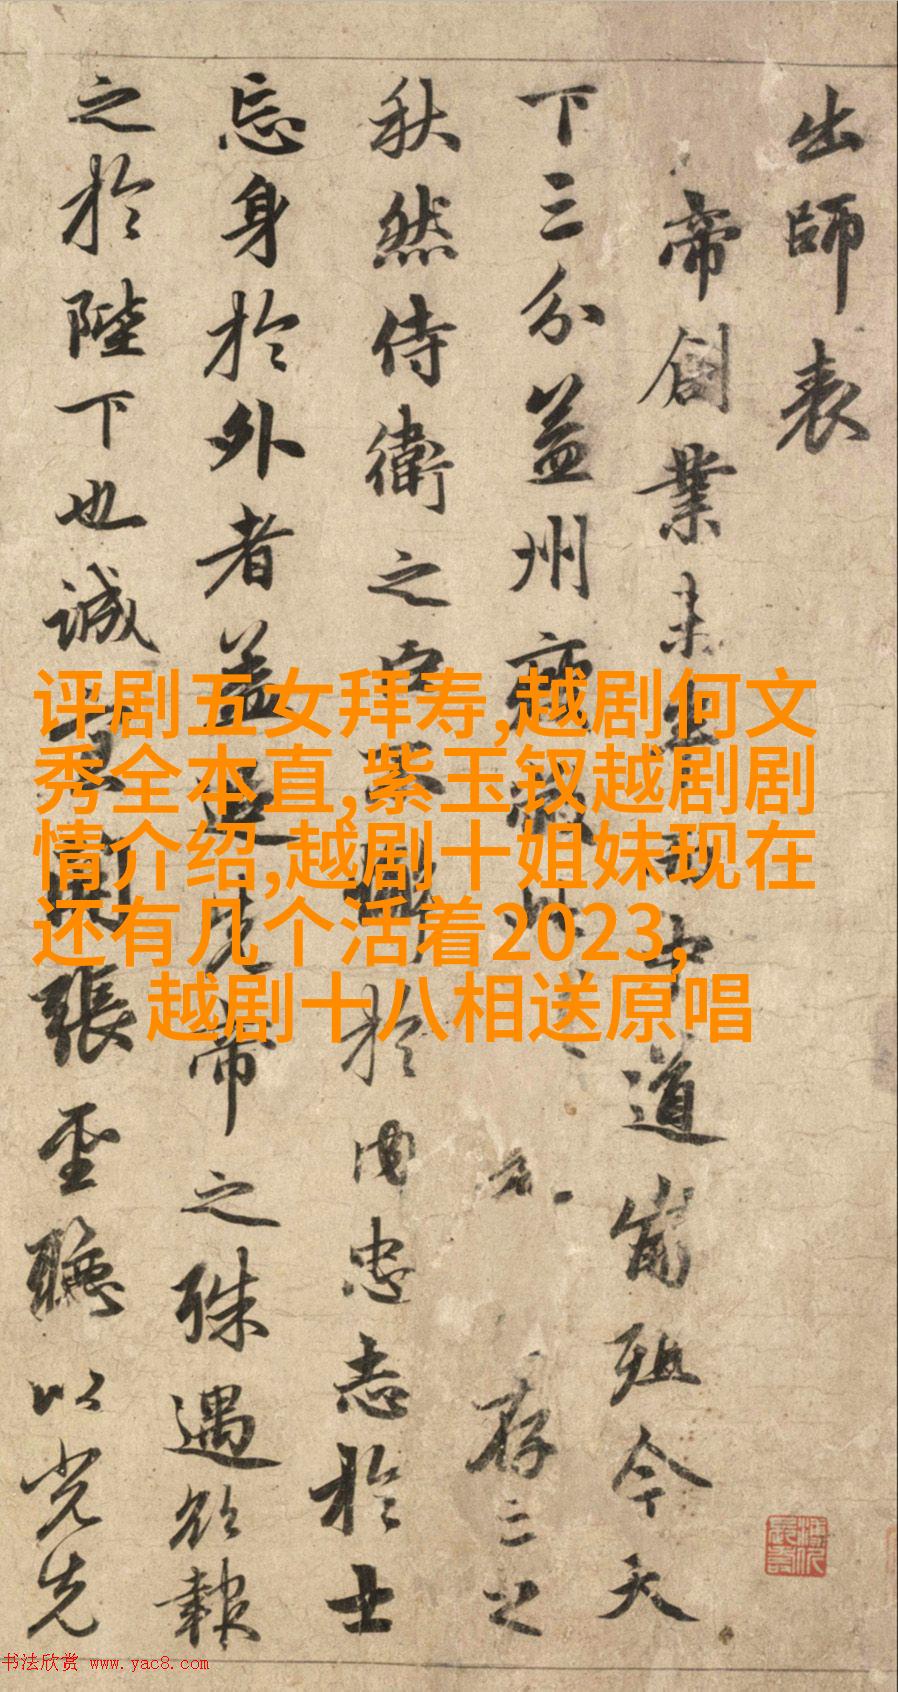 出師表
帝創業未中道崩殂今天
下三分益州疲弊此存亡之
秋然侍衛之臣不懈於内忠志於士
忘身於外者蓋追先帝之殊遇欲報
之於陛下也誠宜開張聖聽以光先
评剧五女拜寿,越剧何文
秀全本直,紫玉钗越剧剧
情介绍,越剧十姐妹现在
还有几个活着2023,
越剧十八相送原唱
书法欣赏 www.yac8.com